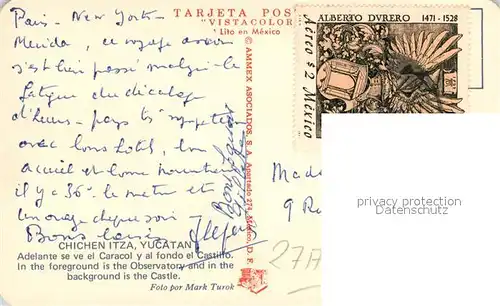 TARJETA POS
"VISTACOLOR
Lito en México
ALBERTO DVRERO 1471-1528
México $2 México
© AMMEX ASOCIADOS, S. A. Apartado 274, México, D. F.
Paris - New York -
Merida, ce voyage avion
s'est bien passé malgré la
fatigue du décalage
d'heures - pays très sympathique
avec bons hotel, bon
accueil et bonne nourriture
il y a 36° le matin et
un orage depuis soir
Bons baisers
Mada
9 R
27A
privacy protection
service
CHICHEN ITZA, YUCATAN
Adelante se ve el Caracol y al fondo el Castillo.
In the foreground is the Observatory and in the
background is the Castle.
Foto por Mark Turok